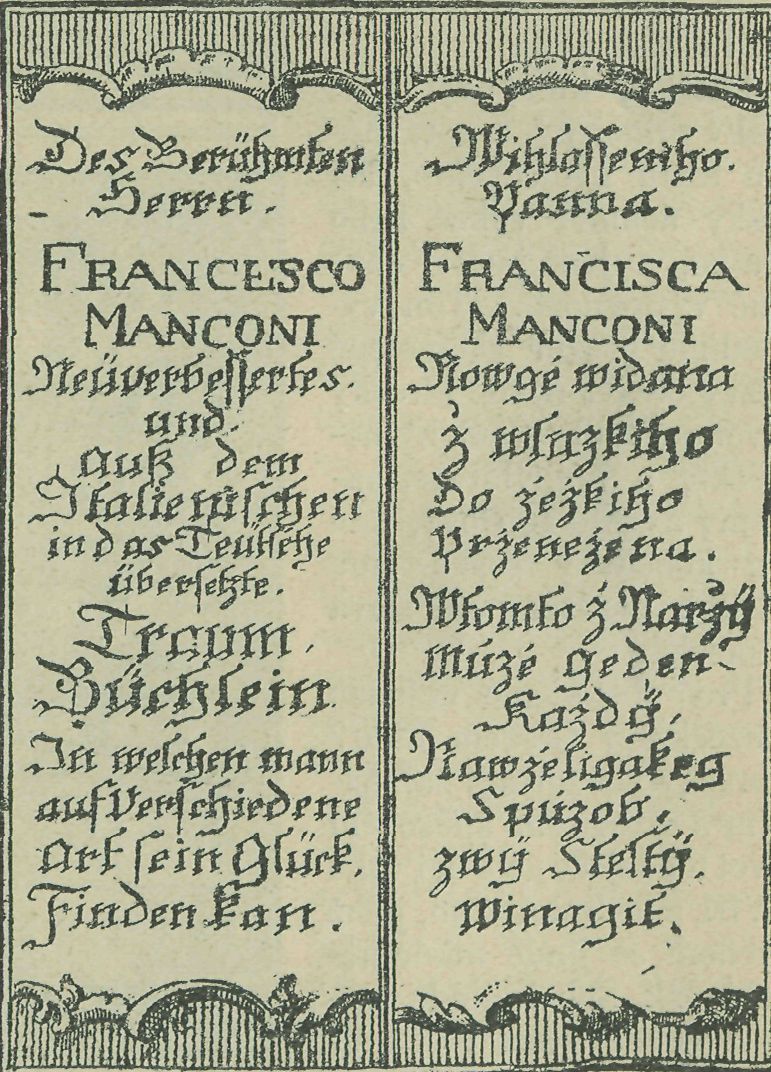 Des Berühmten
Herrn.
FRANCESCO
MANCONI
Neüverbessertes.
und.
Auß dem
Italienischen
in das Teütsche
übersetzte.
Traum.
Büchlein
In welchen mann
auf Verschiedene
Art sein Glück.
Finden kan.
Wihlasseniho.
Panna.
FRANCISCA
MANCONI
Nowgé widana
ż wlazkiho
Do żeżkiho
Prżeneżena.
Wtomto ż
Múzé geden
Każdÿ.
Nawżeligakeg
Spúzob.
zwÿ Stéstÿ.
winagit.